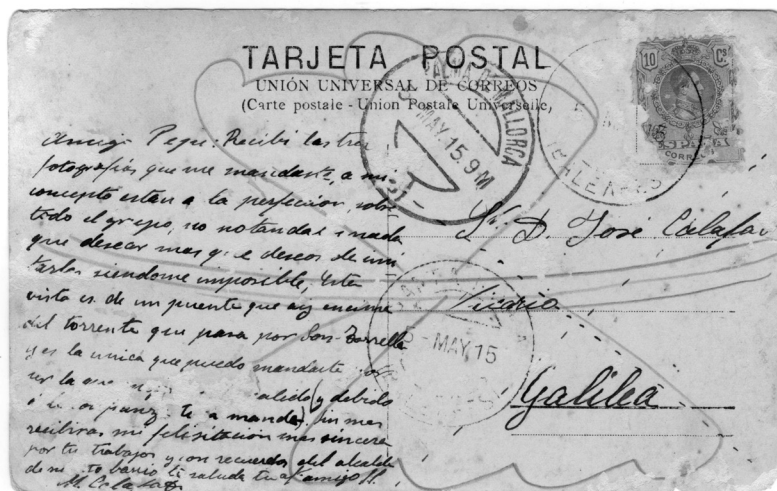 TARJETA POSTAL
UNIÓN UNIVERSAL DE CORREOS
(Carte postale - Union Postale Universelle)
10 Cs
CORREOS
PALMA DE MALLORCA
MAY.15.9M
MAY.15
Amigo Pepe: Recibi las tres
fotografias que me mandaste, a mi
concepto estan a la perfeccion, sobre
todo el grupo, no notandose nada
que desear mas que deseos de
siendome imposible, Esta
vista es de un puente que ay encima
del torrente que pasa por Son Torrella
y es la unica que puedo mandarte por
ser la y debido
a te a mandar. Sin mas
recibiras mi felisitacion mas sincera
por tu trabajos y con recuerdos del alcalde
de barrio te saluda tu af amigo
M. Calafat
Sr. D. José Calafat
Vicario
Galilea